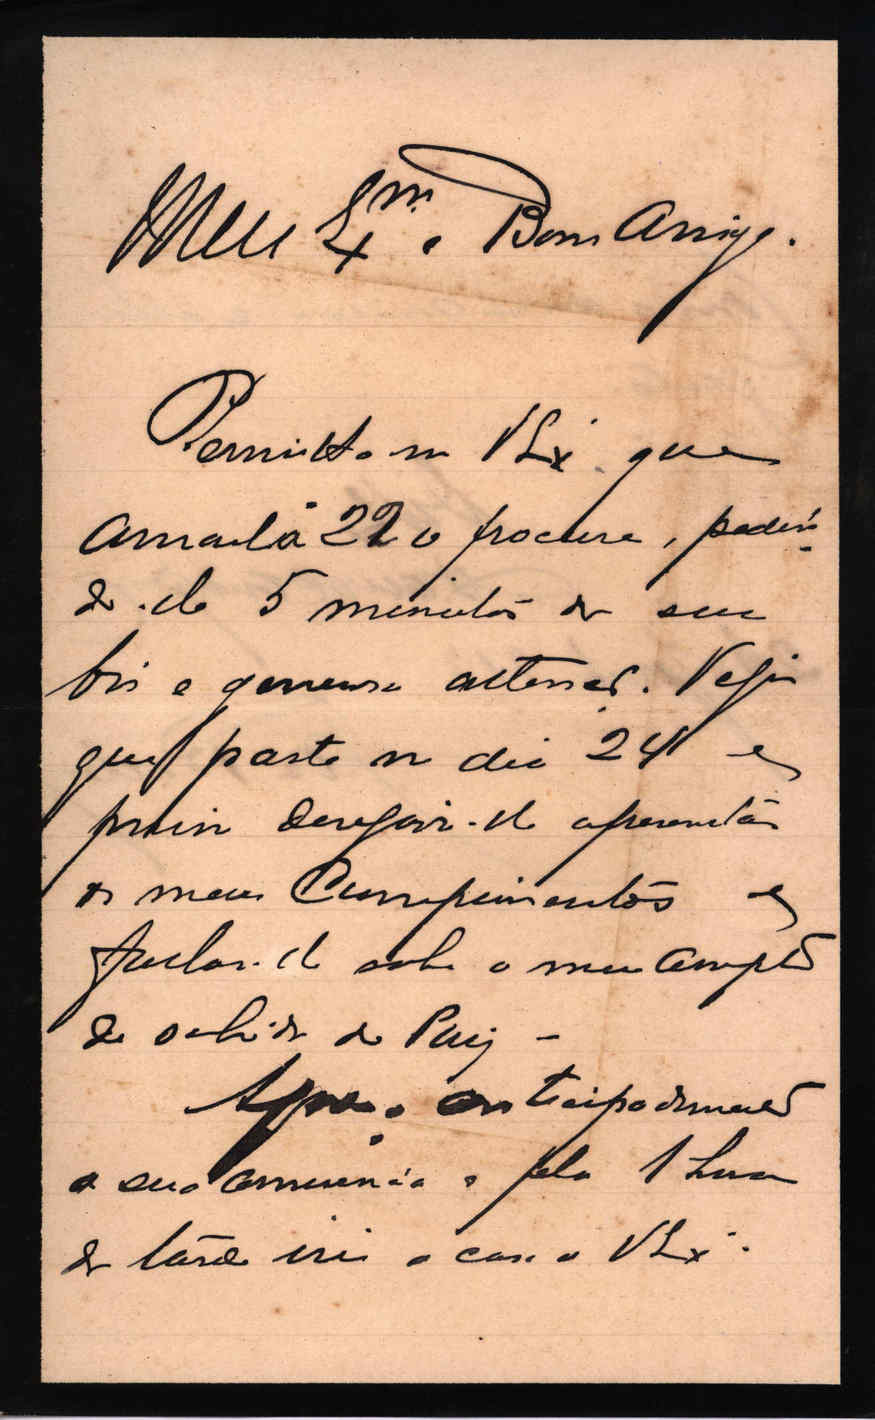 Meu Exmo e Bom Amigo.
Permitta-me V Ex. que
amanhã 22 o procure, pedin-
do-lhe 5 minutos de sua
bôa e generosa attenção. Vejo
que parte no dia 24 e
por isso desejava-lhe apresentar
os meus Cumprimentos e
fallar-lhe sobre o meu amigo
de
antecipadamente
a sua annuencia e pela 1 hora
da tarde irei a casa V Ex.